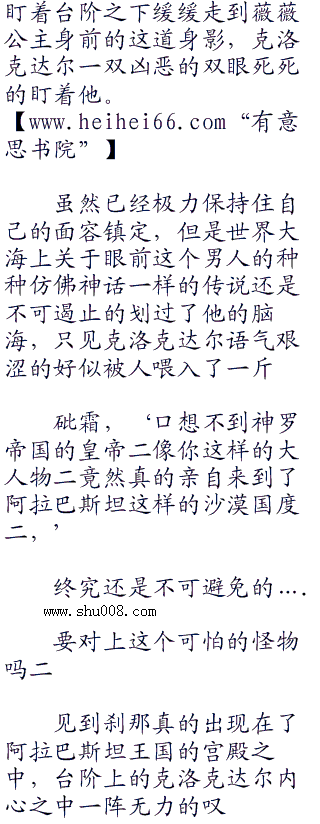 盯着台阶之下缓缓走到薇薇
公主身前的这道身影，克洛
克达尔一双凶恶的双眼死死
的盯着他。
【www.heihei66.com“有意
思书院”】
虽然已经极力保持住自
己的面容镇定，但是世界大
海上关于眼前这个男人的种
种仿佛神话一样的传说还是
不可遏止的划过了他的脑
海，只见克洛克达尔语气艰
涩的好似被人喂入了一斤
砒霜，‘口想不到神罗
帝国的皇帝二像你这样的大
人物二竟然真的亲自来到了
阿拉巴斯坦这样的沙漠国度
二，’
终究还是不可避免的....
www.shu008.com
要对上这个可怕的怪物
吗二
见到刹那真的出现在了
阿拉巴斯坦王国的宫殿之
中，台阶上的克洛克达尔内
心之中一阵无力的叹